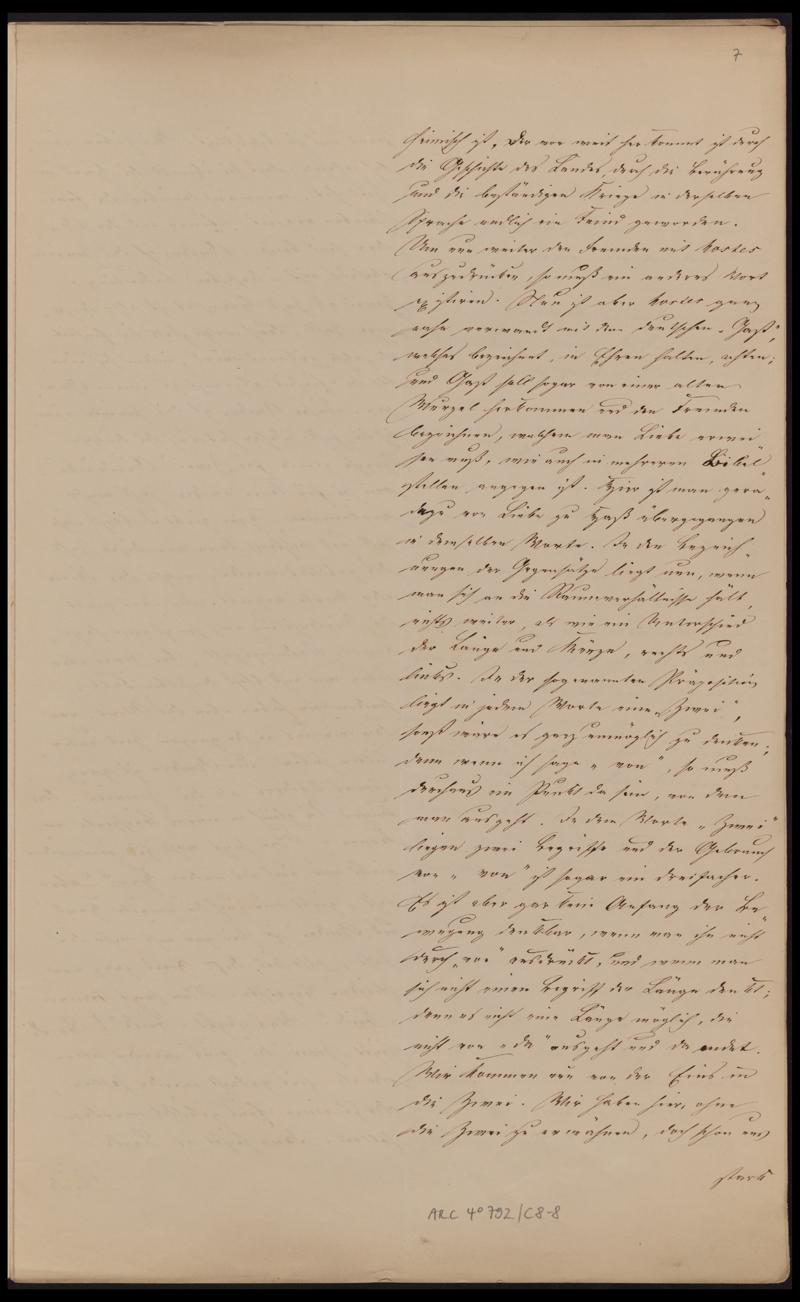 7
heimisch ist. Der von weit her kommt ist durch
die Geschichte des Landes, durch die Berührung
und die beständigen Kriege in derselben
Sprache endlich ein Feind geworden.
Um nun weiter den Fremden mit hostes
auszudrücken, so muß ein anderes Wort
existiren. Nun ist aber hostes ganz
nahe verwandt mit dem deutschen „Gast",
welches bezeichnet, in Ehren halten, achten;
und Gast soll sogar von einer alten
Wurzel herkommen und den Fremden
bezeichnen, welchem man Liebe erwei
sen muß, wie auch in mehreren Bibel
stellen angegen ist. Hier ist man gera
dezu von Liebe zu Haß übergegangen
in demselben Worte. In den Bezeich
nungen der Gegensätze liegt nun, wenn
man sich an die Raumverhältnisse hält,
nichts weiter, als wie ein Unterschied
der Länge und Kürze, rechts und
links. In der sogenannten Präposition
liegt in jedem Worte eine „Zwei",
sonst wäre es ganz unmöglich zu denken;
denn wenn ich sage „von", so muß
durchaus ein Punkt da sein, von dem
man ausgeht. In dem Worte „Zwei"
liegen zwei Begriffe und der Gebrauch
von „von" ist sogar ein dreifacher.
Es ist aber gar kein Anfang der Be
wegung denkbar, wenn man ihn nicht
durch „von" ausdrückt, und wenn man
sich nicht einen Begriff der Länge denkt;
denn es ist nicht eine Länge möglich, die
nicht von „da" ausgeht und da endet.
Wir kommen nun von der Eins in
die Zwei. Wir haben hier, ohne
die Zwei zu erwähnen, doch schon uns
stark
ARC 4° 792/C8-8